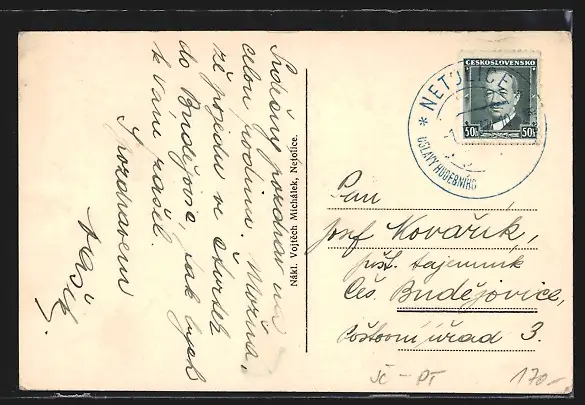 Srdečný pozdrav na
celou rodinu. Možná,
že pojedu ve čtvrtek
do Budějovic, tak bych
k Vám zašel.
S pozdravem
Nákl. Vojtěch Michálek, Netolice.
ČESKOSLOVENSKO
50h 50h
* NETOLICE
OSLAVY HUDEBNÍHO
Pan
Josef Kovařík,
pošt. tajemník
Čes. Budějovice,
Poštovní úřad 3.
JČ - PT 170,-